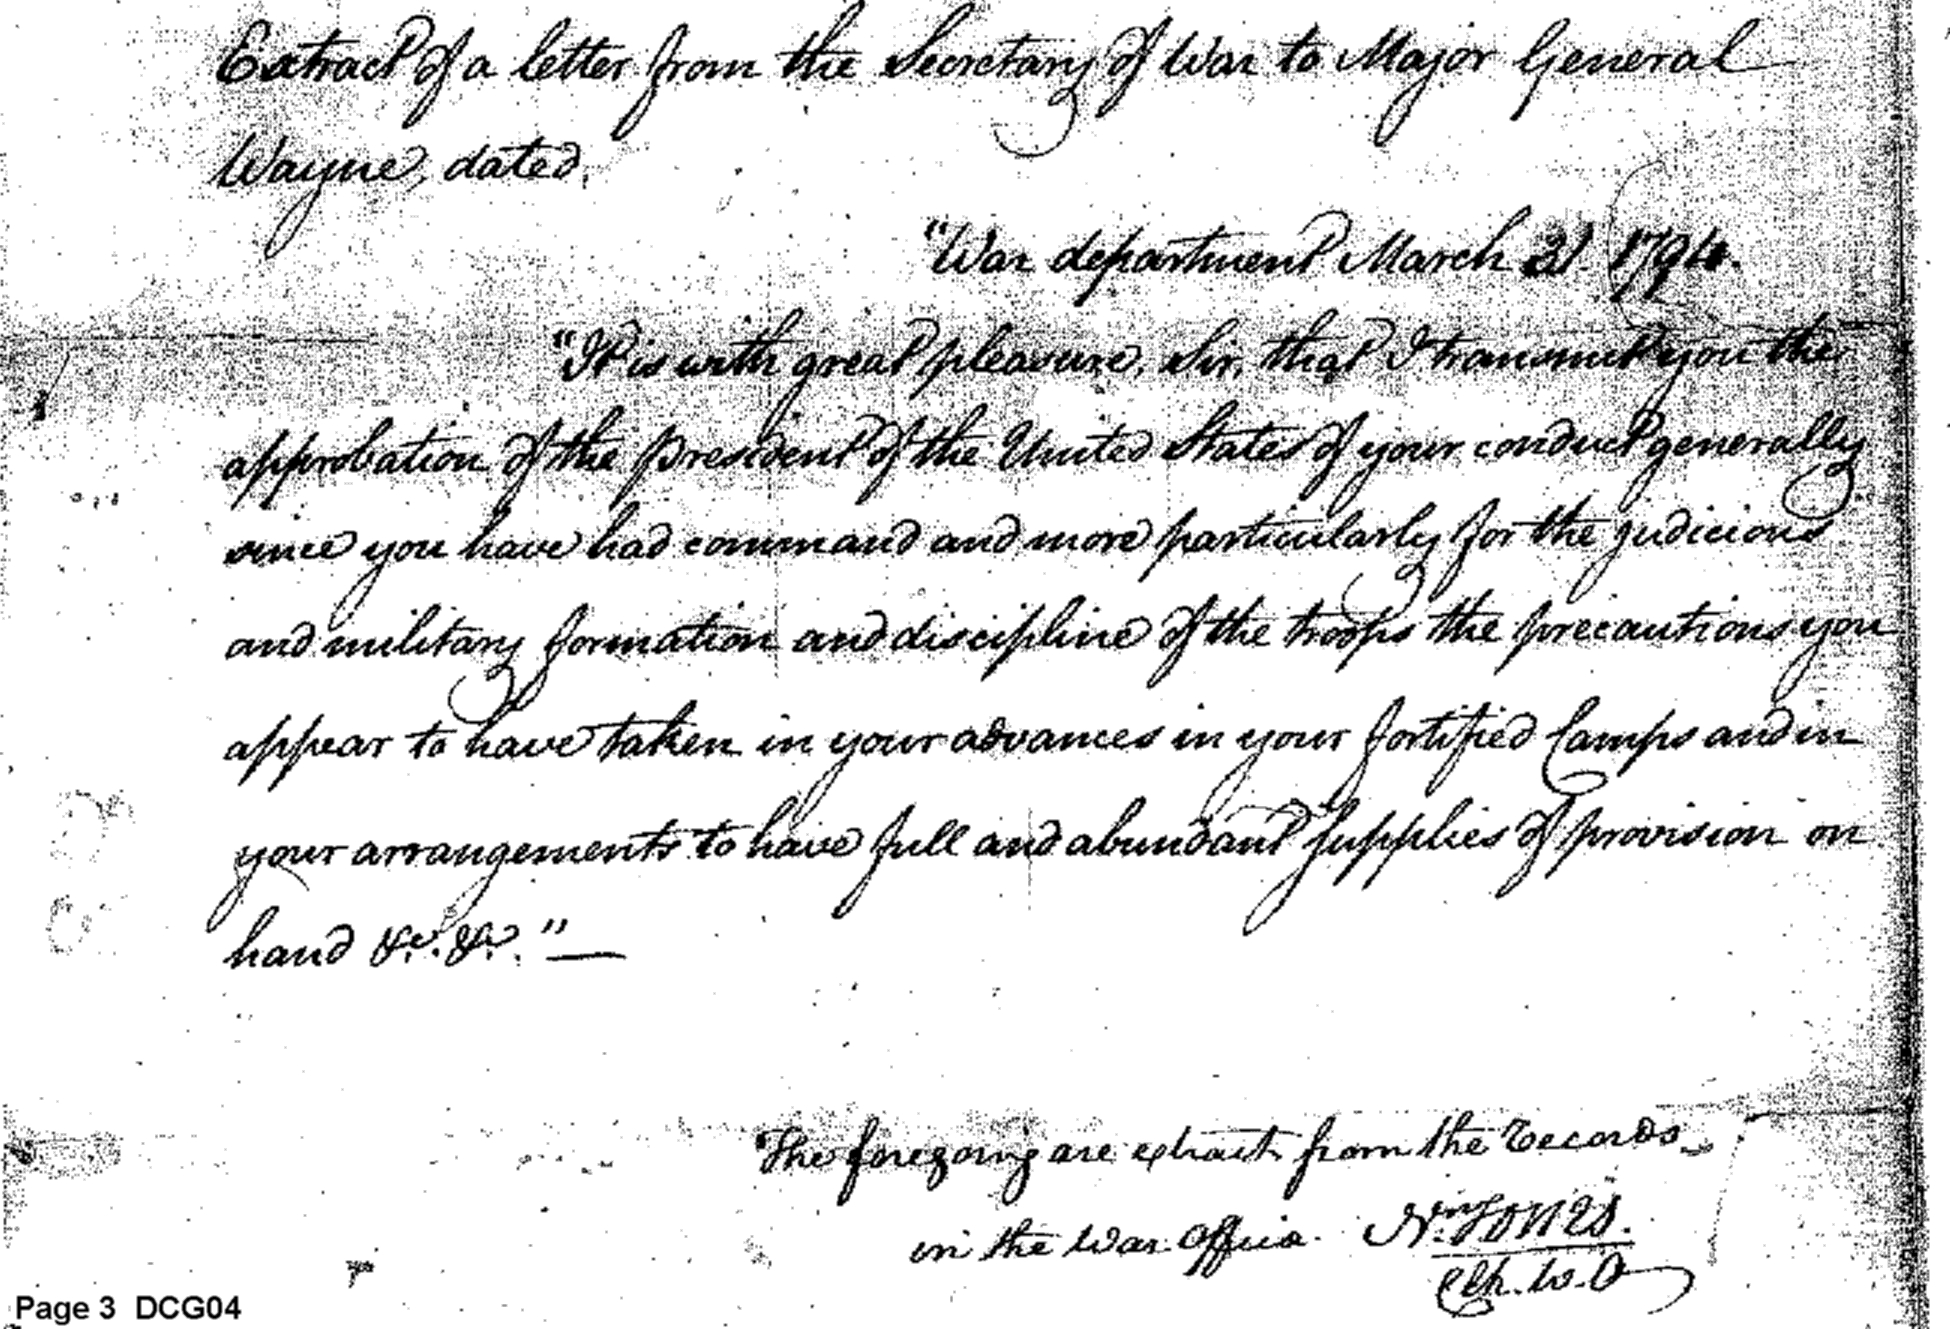 Extract of a letter from the Secretary of War to Major General
Wayne, dated,
"War department March 31. 1794.
"It is with great pleasure, Sir, that I transmit you the
approbation of the President of the United States of your conduct generally
since you have had command and more particularly for the judicious
and military formation and discipline of the troops the precautions you
appear to have taken in your advances in your fortified Camps and in
your arrangements to have full and abundant supplies of provision on
hand &c. &c." —
The foregoing are extracts from the Records
in the War Office. Nn Jones.
Clk. W. O
Page 3 DCG04